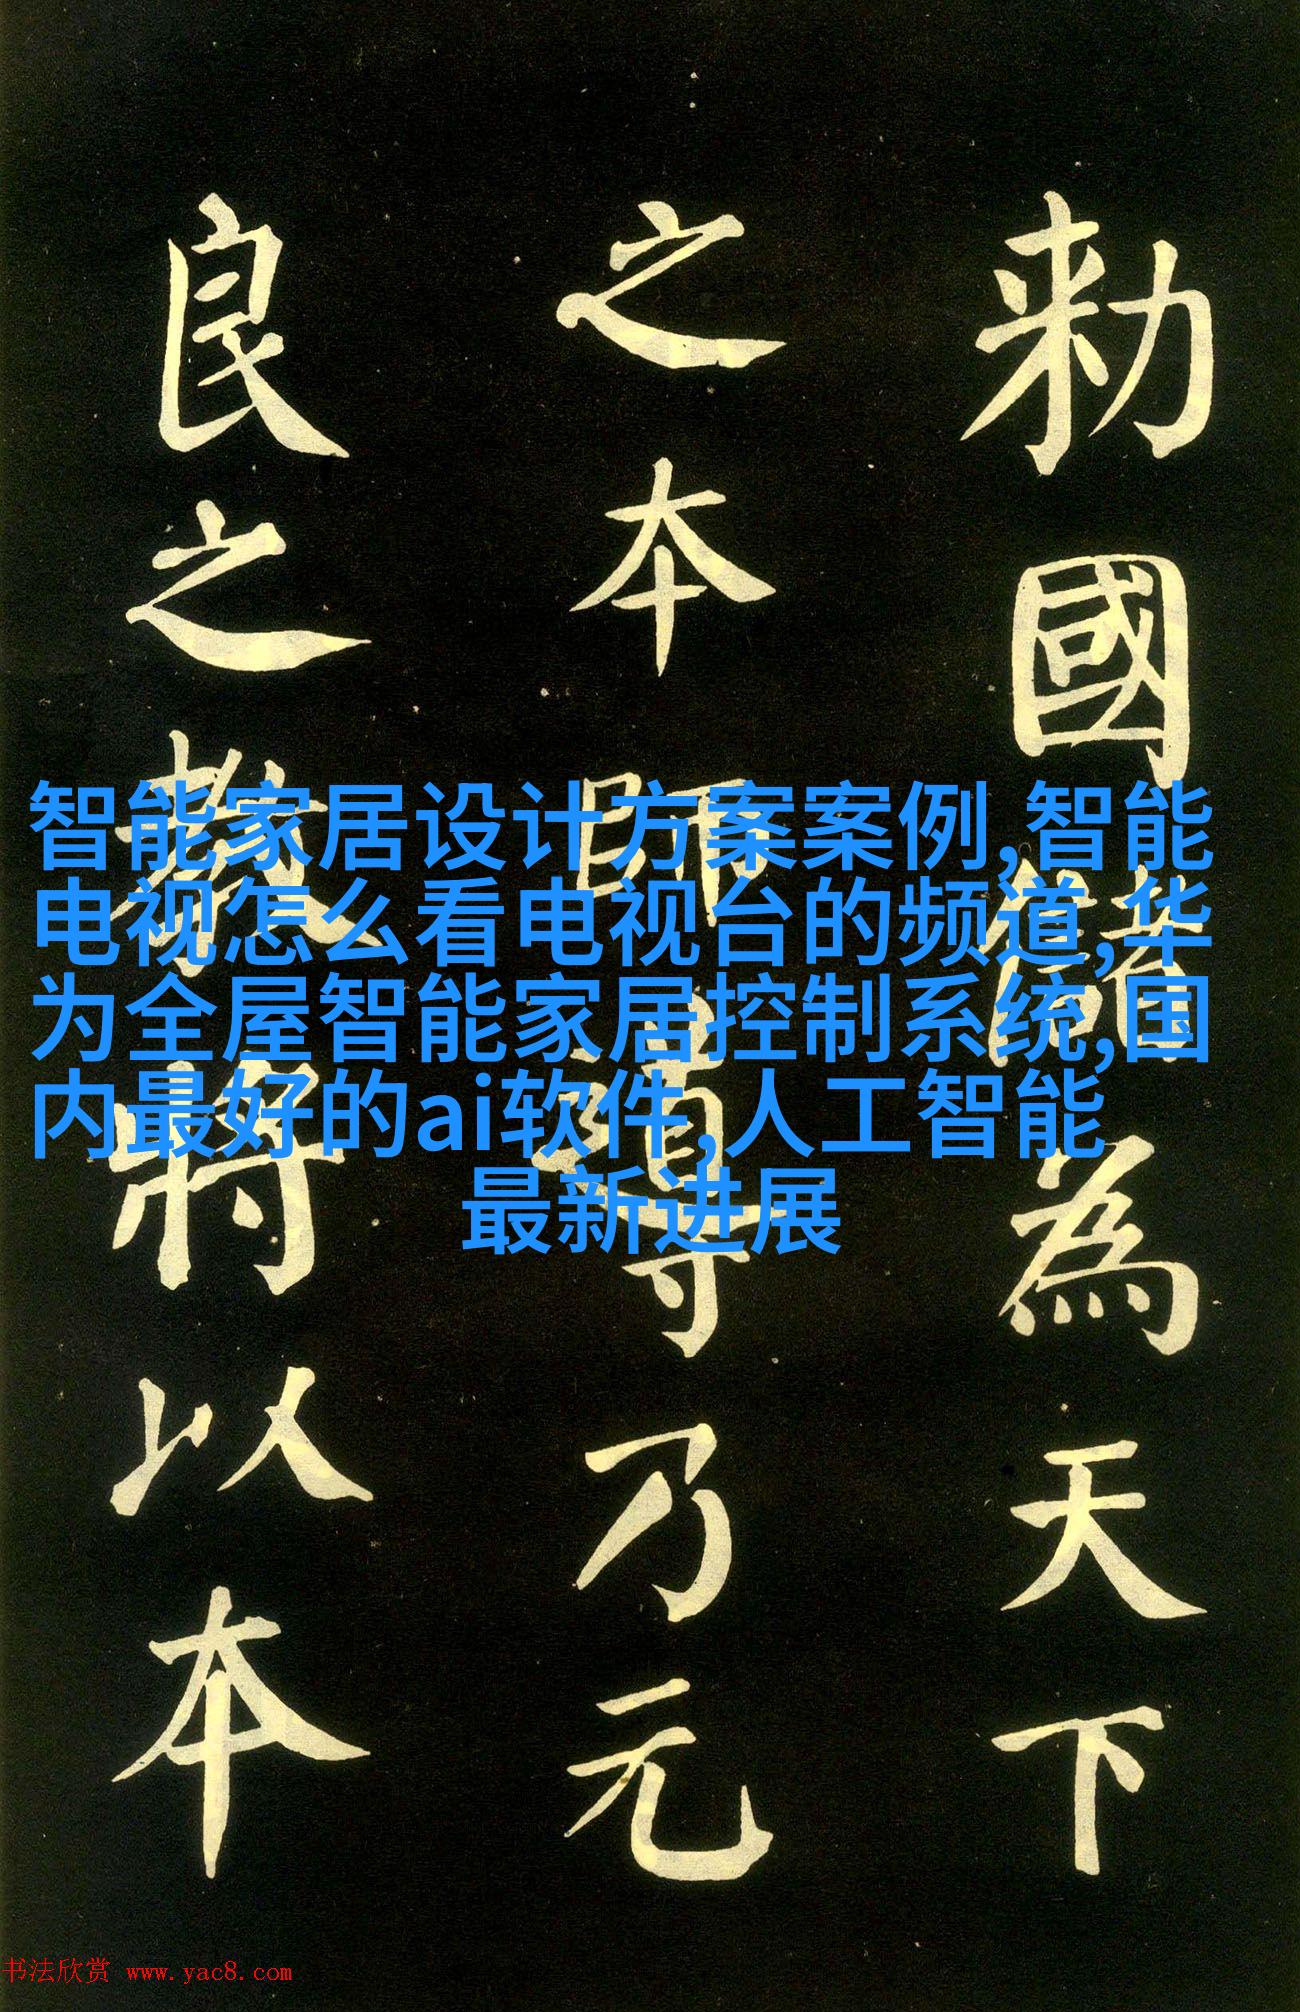 勑國儲為天下
之本師導乃元
良之教將以本
智能家居设计方案案例,智能
电视怎么看电视台的频道,华
为全屋智能家居控制系统,国
内最好的ai软件,人工智能
最新进展
书法欣赏 www.yac8.com